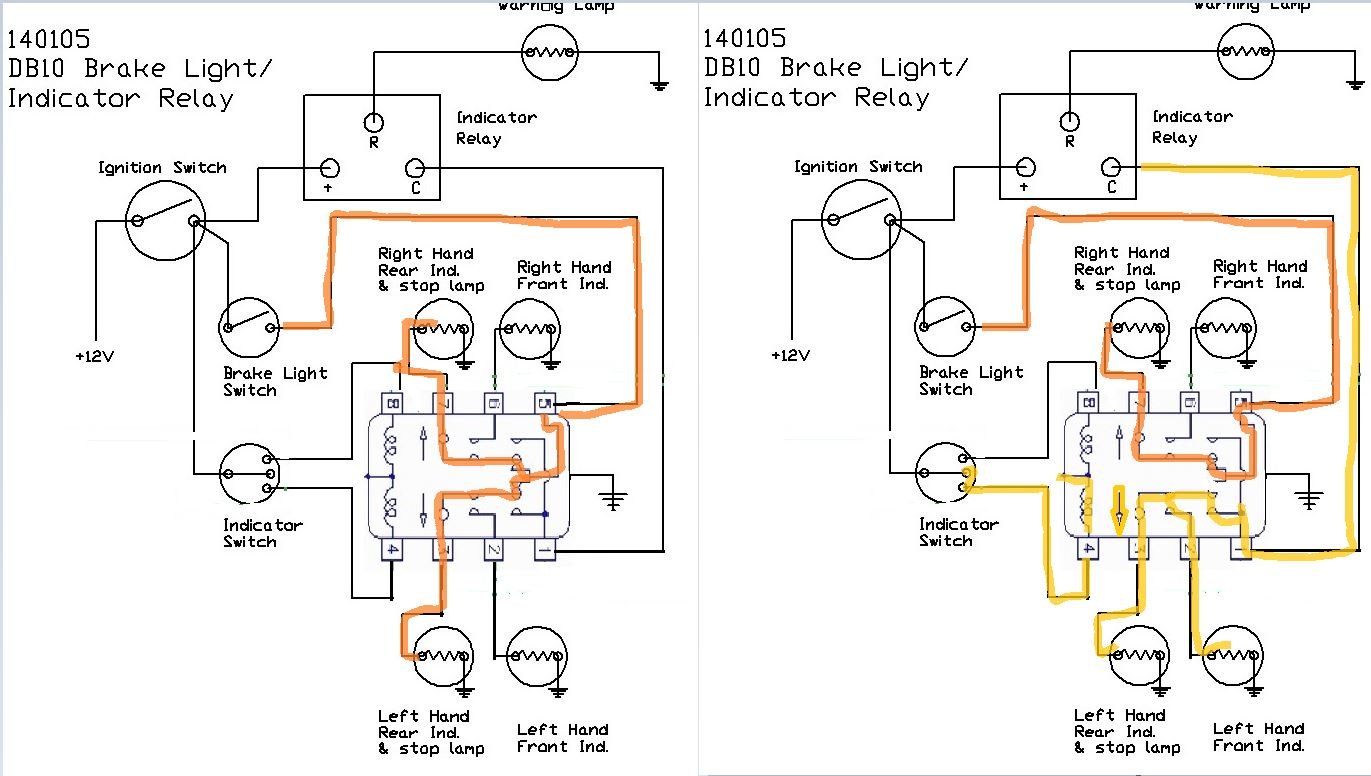 Warning Lamp
140105
DB10 Brake Light/
Indicator Relay
Indicator
Relay
R
+
C
Ignition Switch
Right Hand
Rear Ind.
& stop lamp
Right Hand
Front Ind.
+12V
Brake Light
Switch
8
7
6
5
Indicator
Switch
4
3
2
1
Left Hand
Rear Ind.
& stop lamp
Left Hand
Front Ind.
Warning Lamp
140105
DB10 Brake Light/
Indicator Relay
Indicator
Relay
R
+
C
Ignition Switch
Right Hand
Rear Ind.
& stop lamp
Right Hand
Front Ind.
+12V
Brake Light
Switch
8
7
6
5
Indicator
Switch
4
3
2
1
Left Hand
Rear Ind.
& stop lamp
Left Hand
Front Ind.